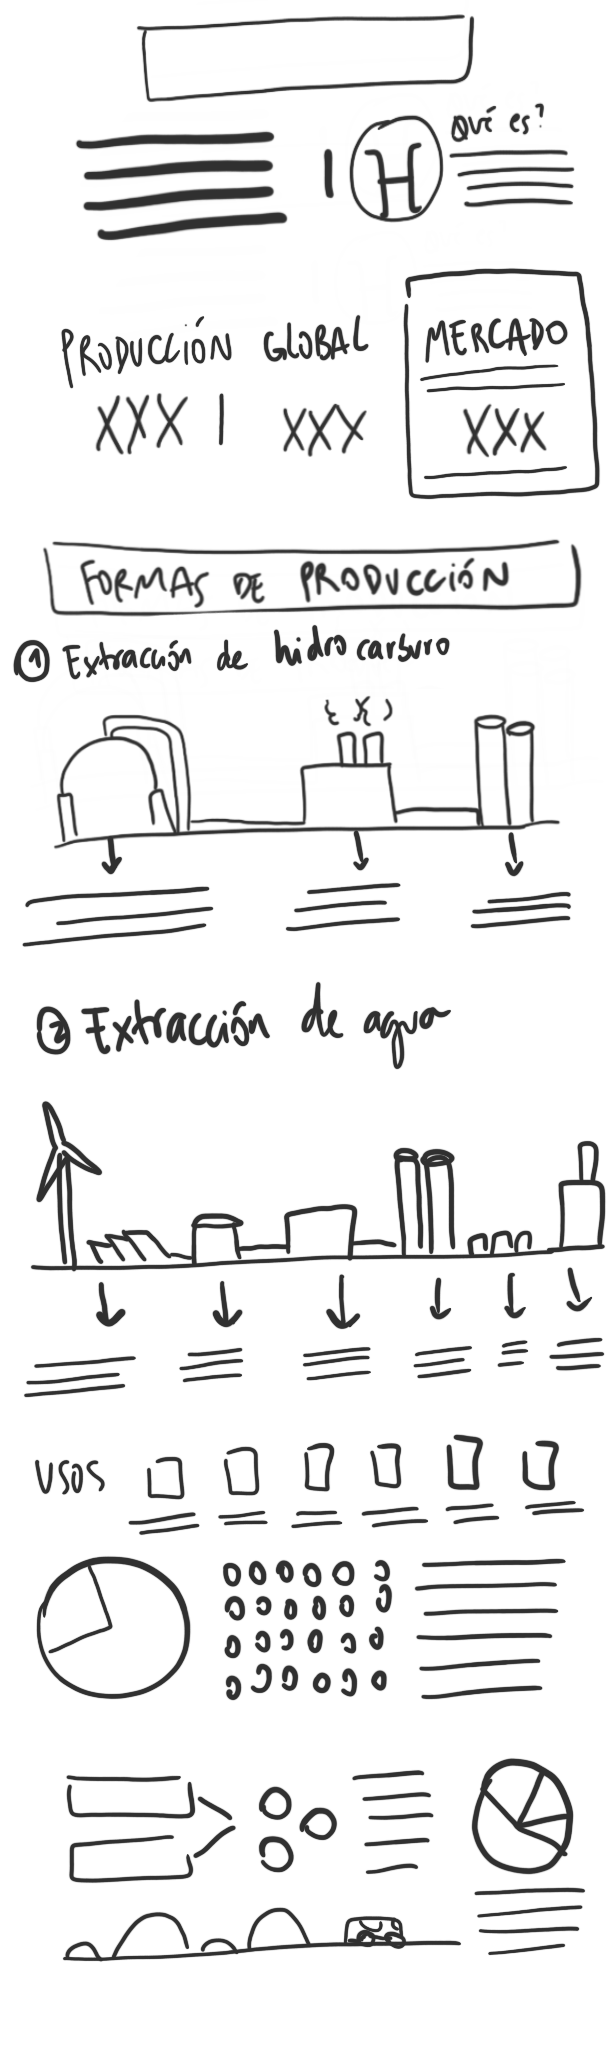 Qué es?
H
PRODUCCIÓN GLOBAL
XXX | XXX
MERCADO
XXX
FORMAS DE PRODUCCIÓN
① Extracción de hidrocarburo
② Extracción de agua
USOS